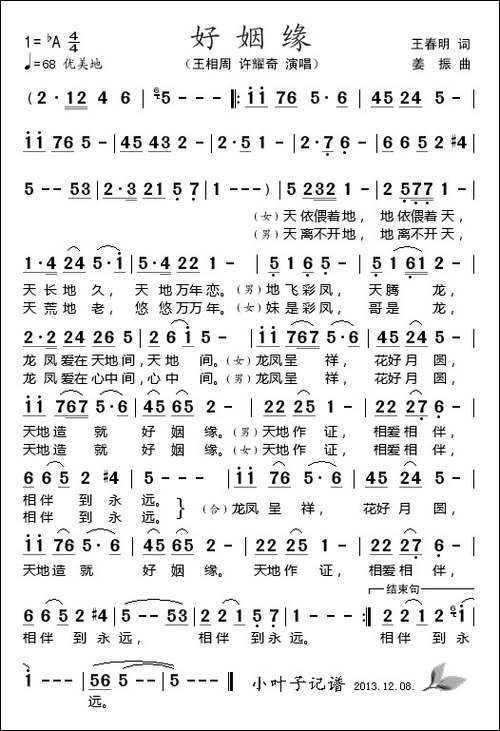 好姻缘
1=♭A 4/4
王春明 词
♩=68 优美地
（王相周 许耀奇 演唱）
姜 振 曲
(2·12 4 6 | 5·5 - - - ‖: i i 76 5·6 | 45 24 5 - |
i i 76 5 - | 45 43 2 - | 2·5 1 - | 2·7 6 - | 6 6 5 2 #4 |
5 - - 53 | 2·3 21 5 7 | 1 - - - ) | 5 232 1 - | 2 577 1 - |
（女）天 依偎着 地， 地 依偎着 天，
（男）天 离不开 地， 地 离不开 天，
1·4 24 5·i | 5 2 42 1 - | 5 6 5 - | 5 1 61 2 - |
天 长 地 久， 天 地 万年 恋。（男）地 飞 彩 凤， 天 腾 龙，
天 荒 地 老， 悠 悠 万万 年。（女）妹 是 彩 凤， 哥 是 龙，
2·2 24 26 25 | 2 6 i 5 - | i i 767 5 - | 45 24 5 - |
龙 凤 爱在 天地 间，天 地 间。（女）龙凤 呈 祥， 花好 月 圆，
龙 凤 爱在 心中 间，心 中 间。（男）龙凤 呈 祥， 花好 月 圆，
i i 767 5·6 | 45 65 2 - | 22 25 1 - | 22 27 6 - |
天地 造 就 好 姻 缘。（男）天地 作 证， 相爱 相 伴，
天地 造 就 好 姻 缘。（女）天地 作 证， 相爱 相 伴，
6 6 5 2 #4 | 5 - - - | i i 76 5 - | 45 24 5 - |
相伴 到 永 远。
相伴 到 永 远。
（合）龙凤 呈 祥， 花好 月 圆，
i i 76 5·6 | 45 65 2 - | 22 25 1 - | 22 27 6 - |
天地 造 就 好 姻 缘。 天地 作 证， 相爱 相 伴，
结束句
6 6 5 2 #4 | 5 - - 53 | 2 2 1 5 7 | 1 - - - :‖ 2 2 1 6 i |
相伴 到 永 远， 相伴 到 永 远， 相伴 到 永
i - - - | 56 5 - - | 5 - - - ‖
远。
小叶子记谱 2013.12.08.